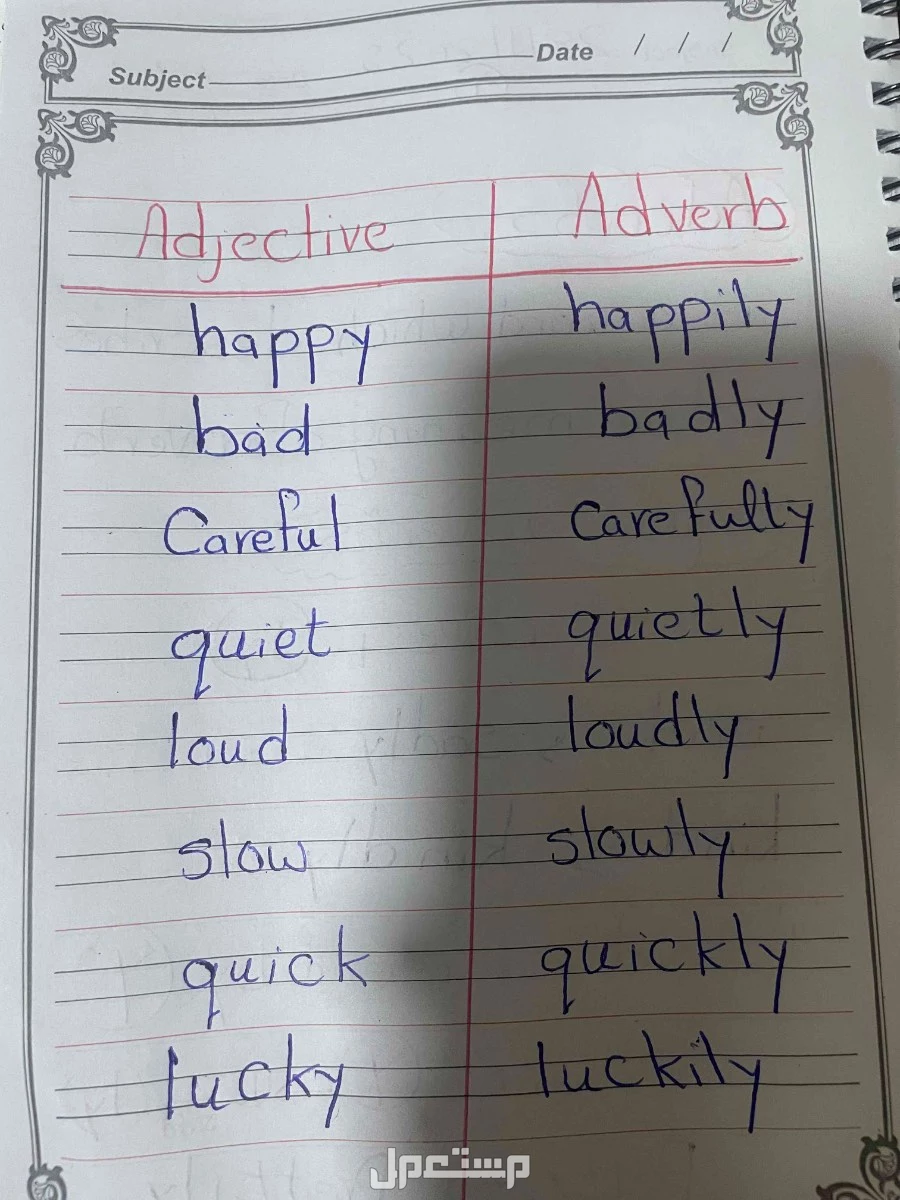 Subject Date / / /
Adjective Adverb
happy happily
bad badly
Careful Carefully
quiet quietly
loud loudly
slow slowly
quick quickly
lucky luckily
مستعمل